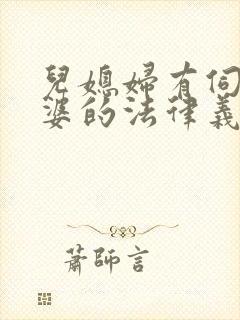 兒媳婦有伺
婆的法律義
蕭師言